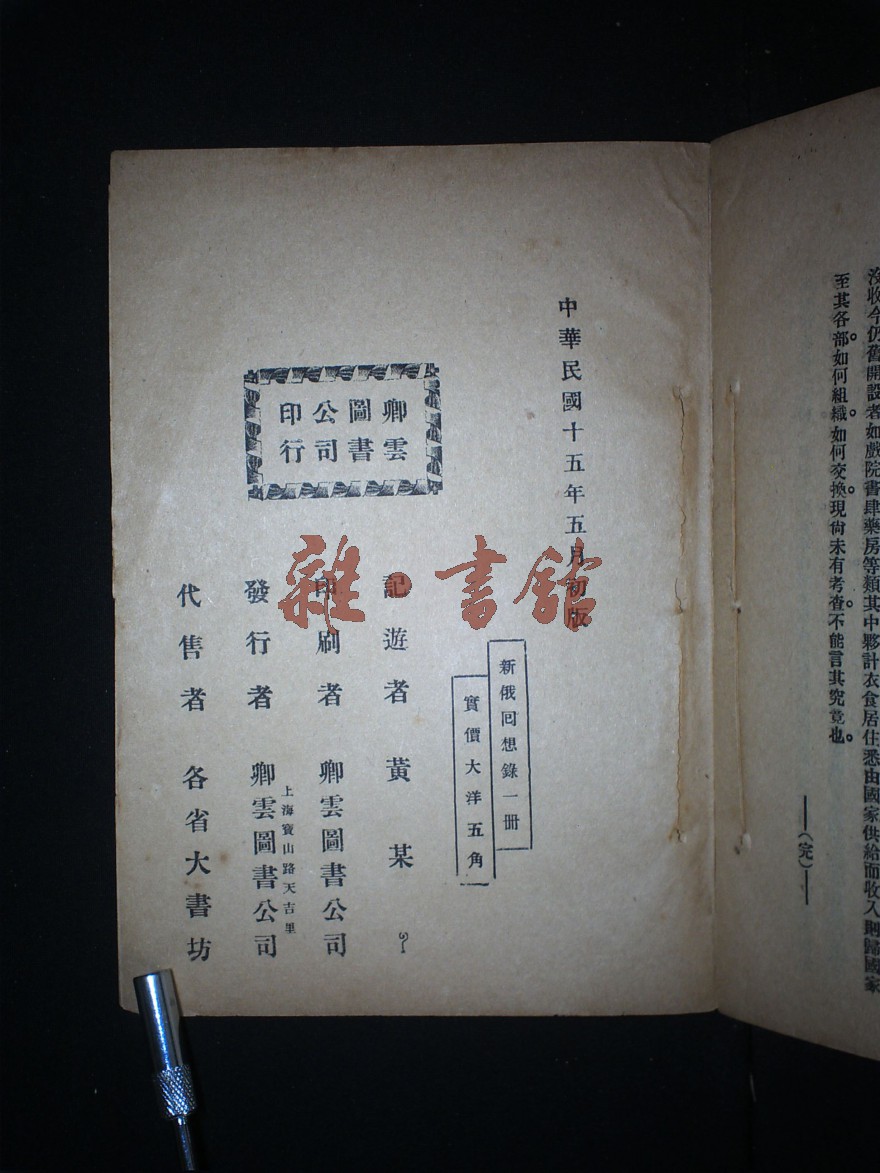 沒收今仍舊開設者如戲院書肆藥房等類其中夥計衣食居住悉由國家供給而收入則歸國家
至其各部。如何組織。如何交換。現尙未有考查。不能言其究竟也。
(完)
中華民國十五年五月初版
新俄回想錄一冊
實價大洋五角
記遊者 黃某?
印刷者 卿雲圖書公司
上海寶山路天吉里
發行者 卿雲圖書公司
代售者 各省大書坊
卿雲
圖書
公司
印行
雜·書館